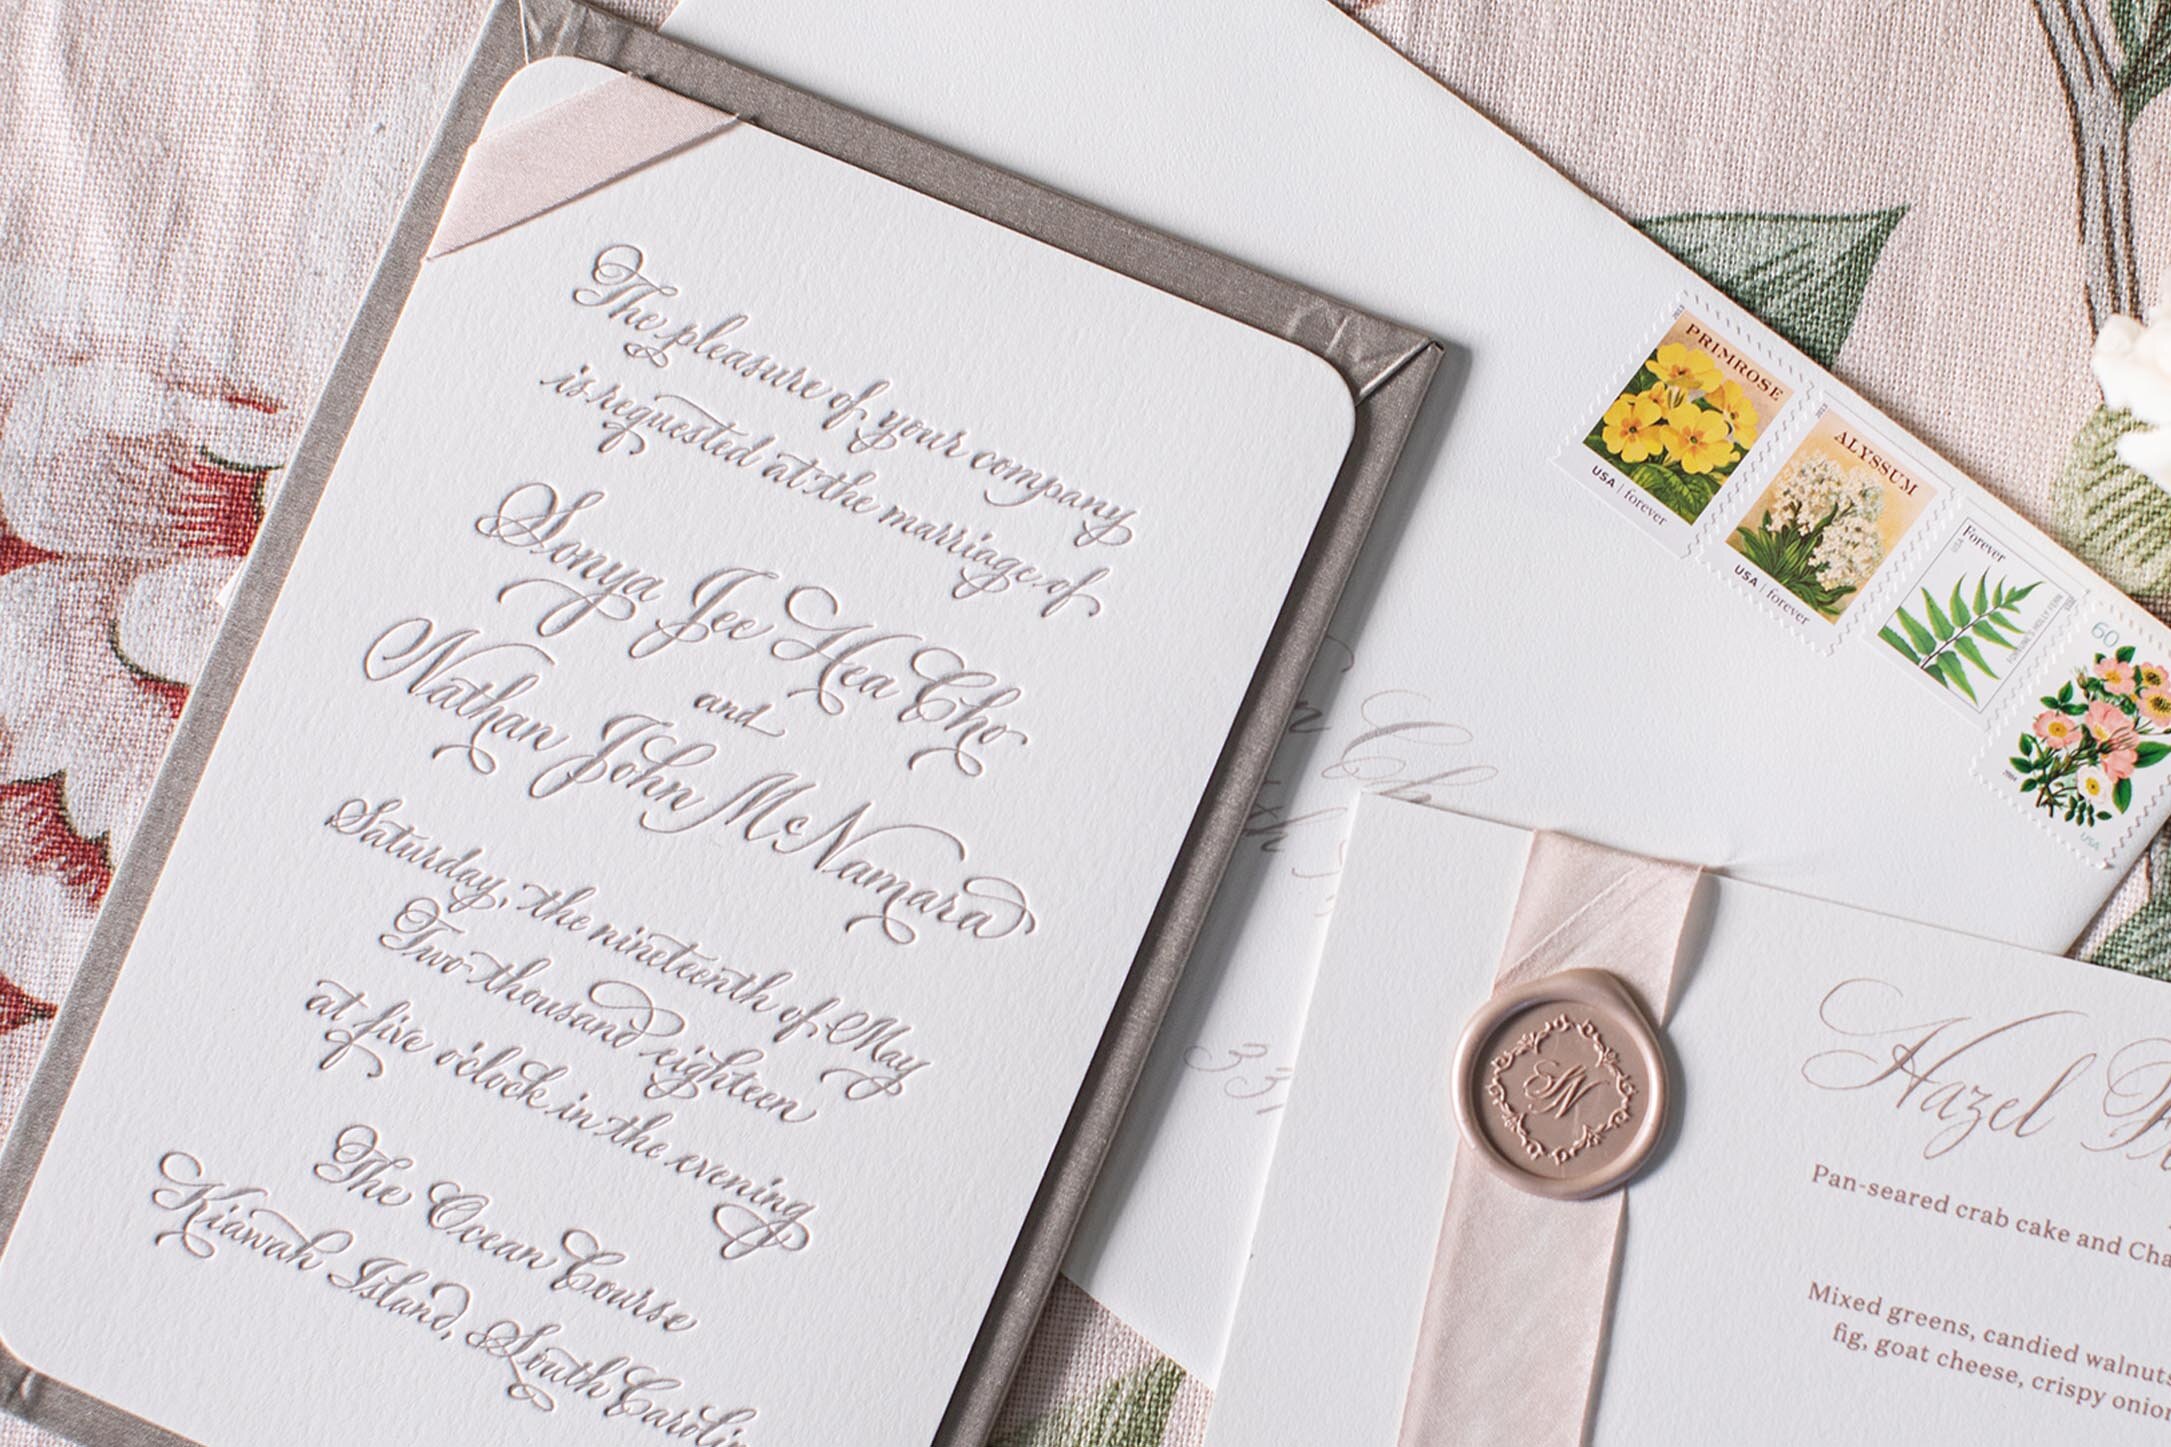 The pleasure of your company
is requested at the marriage of
Sonya Jee Hea Cho
and
Nathan John McNamara
Saturday, the nineteenth of May
Two thousand eighteen
at five o'clock in the evening
The Ocean Course
Kiawah Island, South Carolin
2013
PRIMROSE
USA | forever
2013
ALYSSUM
USA | forever
Forever
USA
60
2004
USA
33
SN
Hazel
Pan-seared crab cake and Cha
Mixed greens, candied walnuts
fig, goat cheese, crispy onion